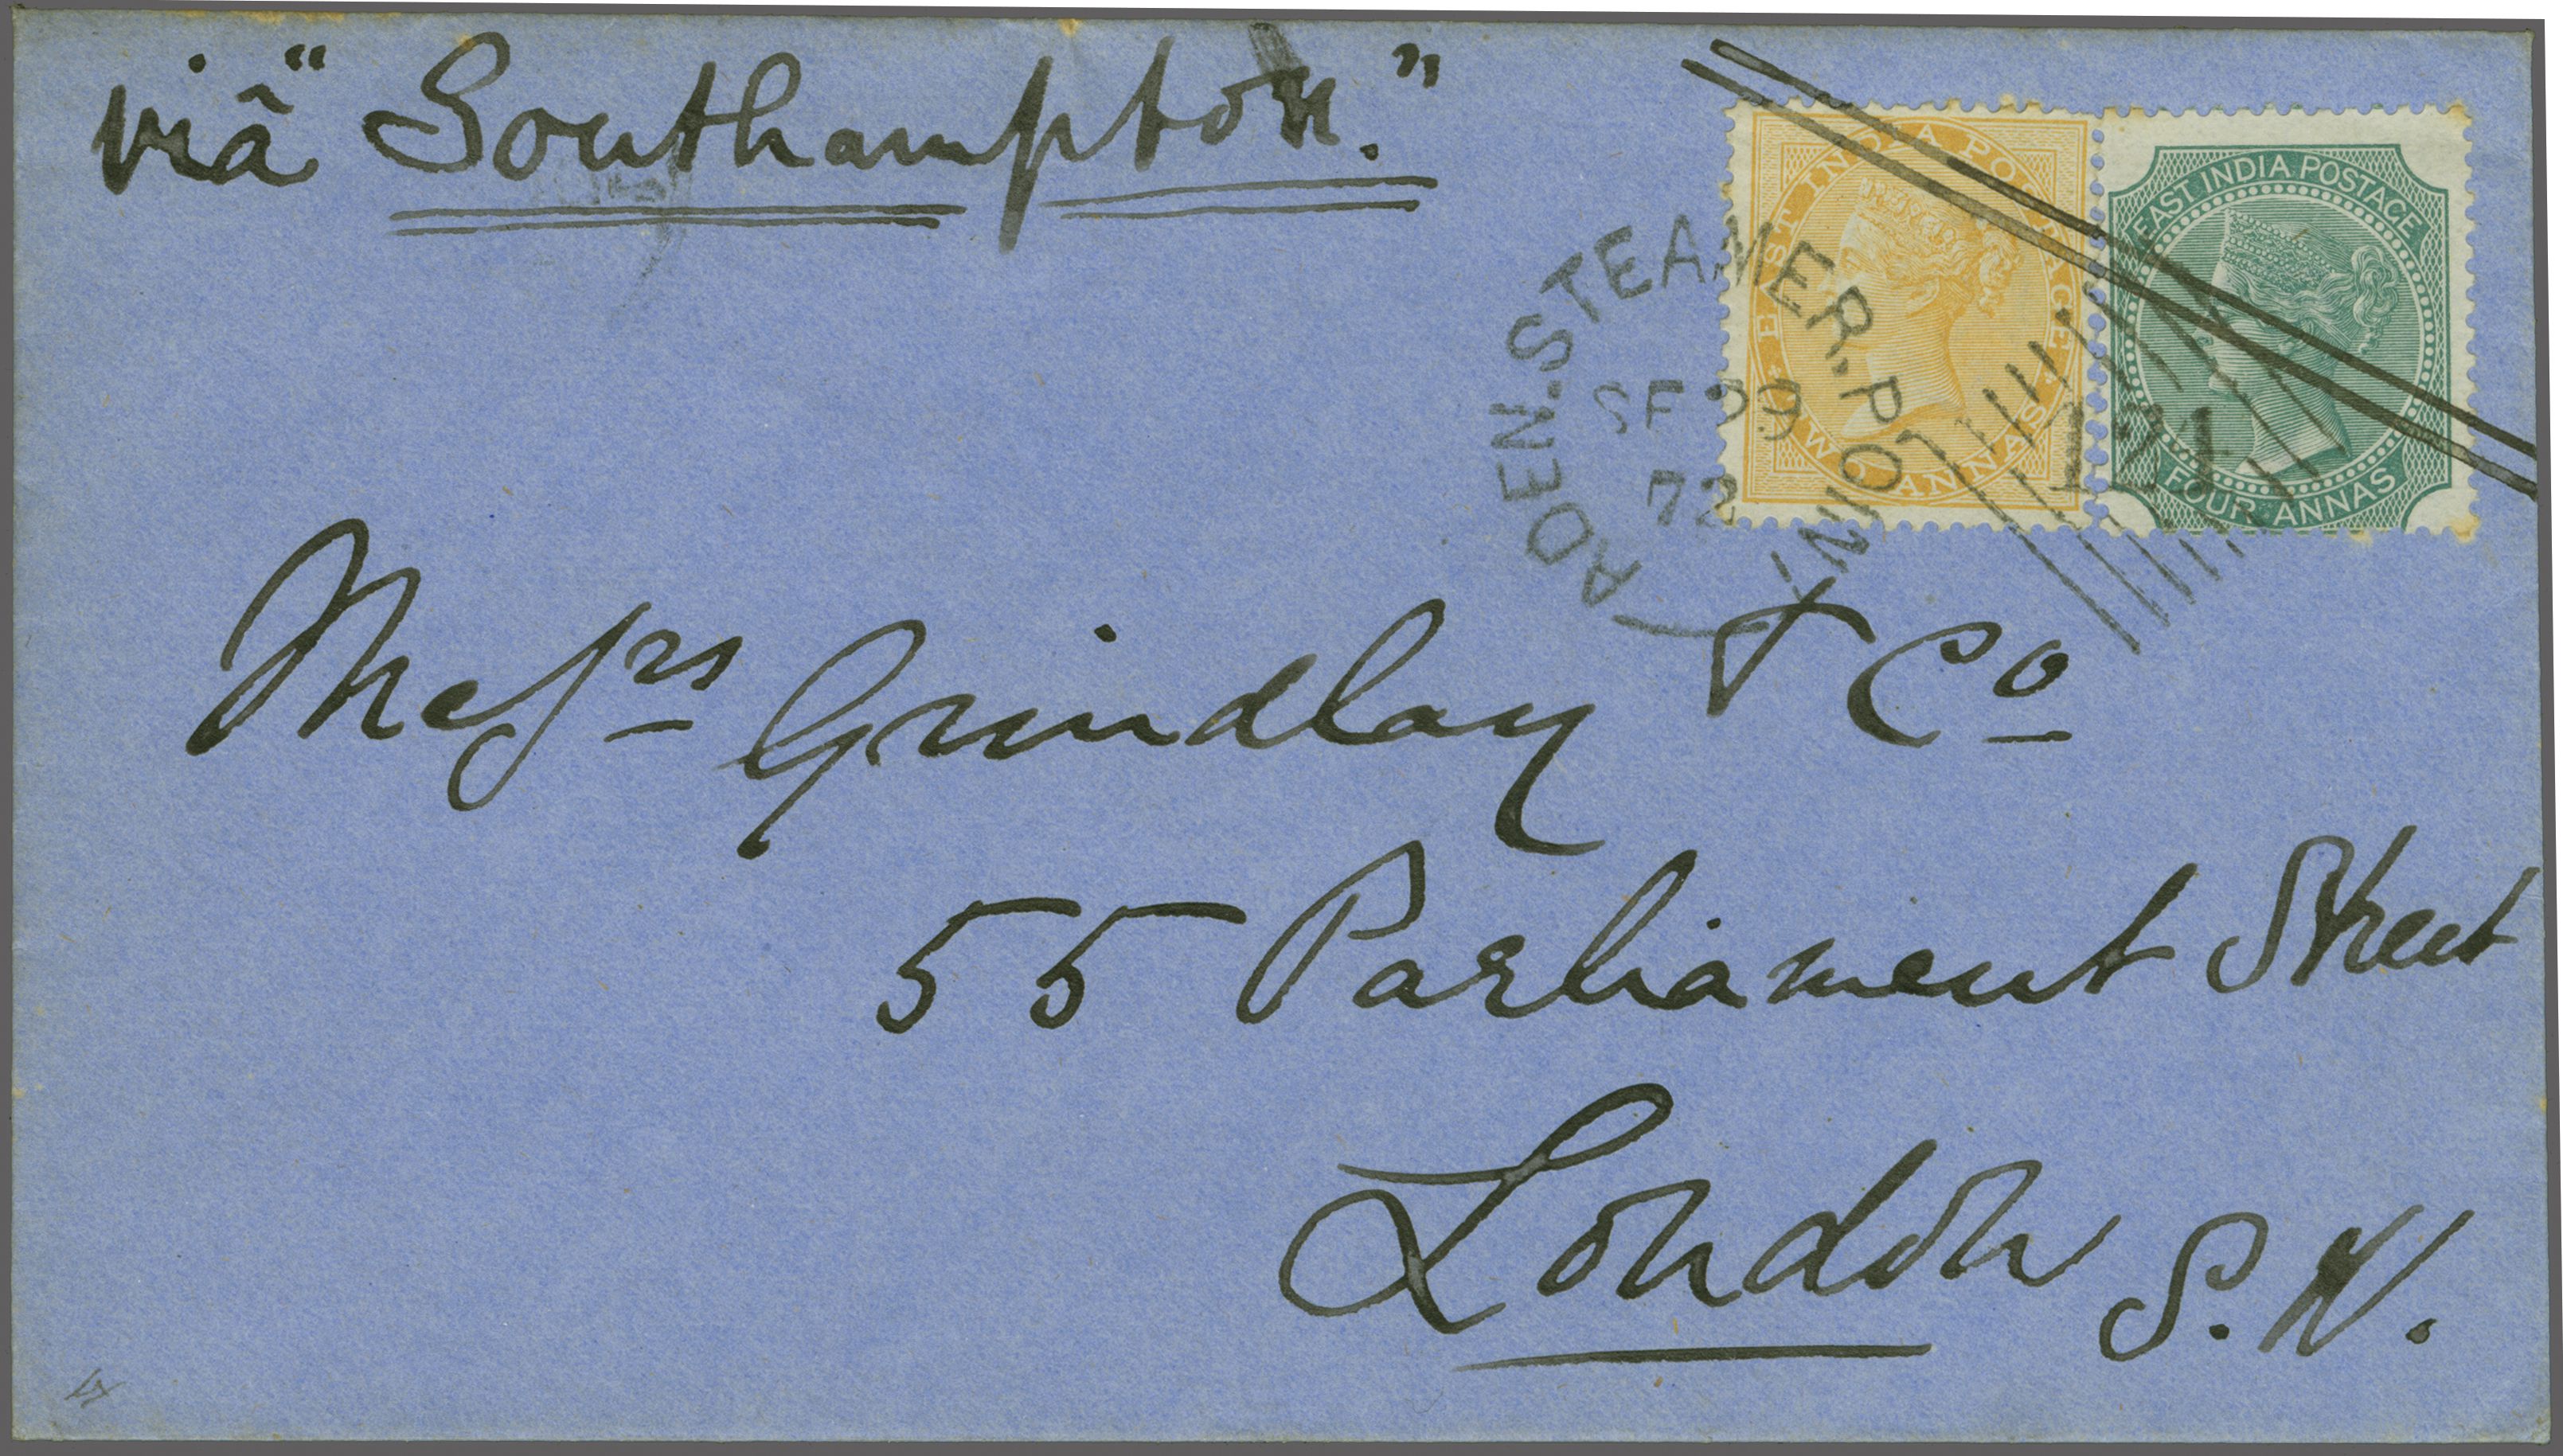 viâ "Southampton."
EAST INDIA POSTAGE
TWO ANNAS
EAST INDIA POSTAGE
FOUR ANNAS
ADEN.STEAMER.POINT
72
Messrs Grindlay & Co
55 Parliament Street
London S.W.